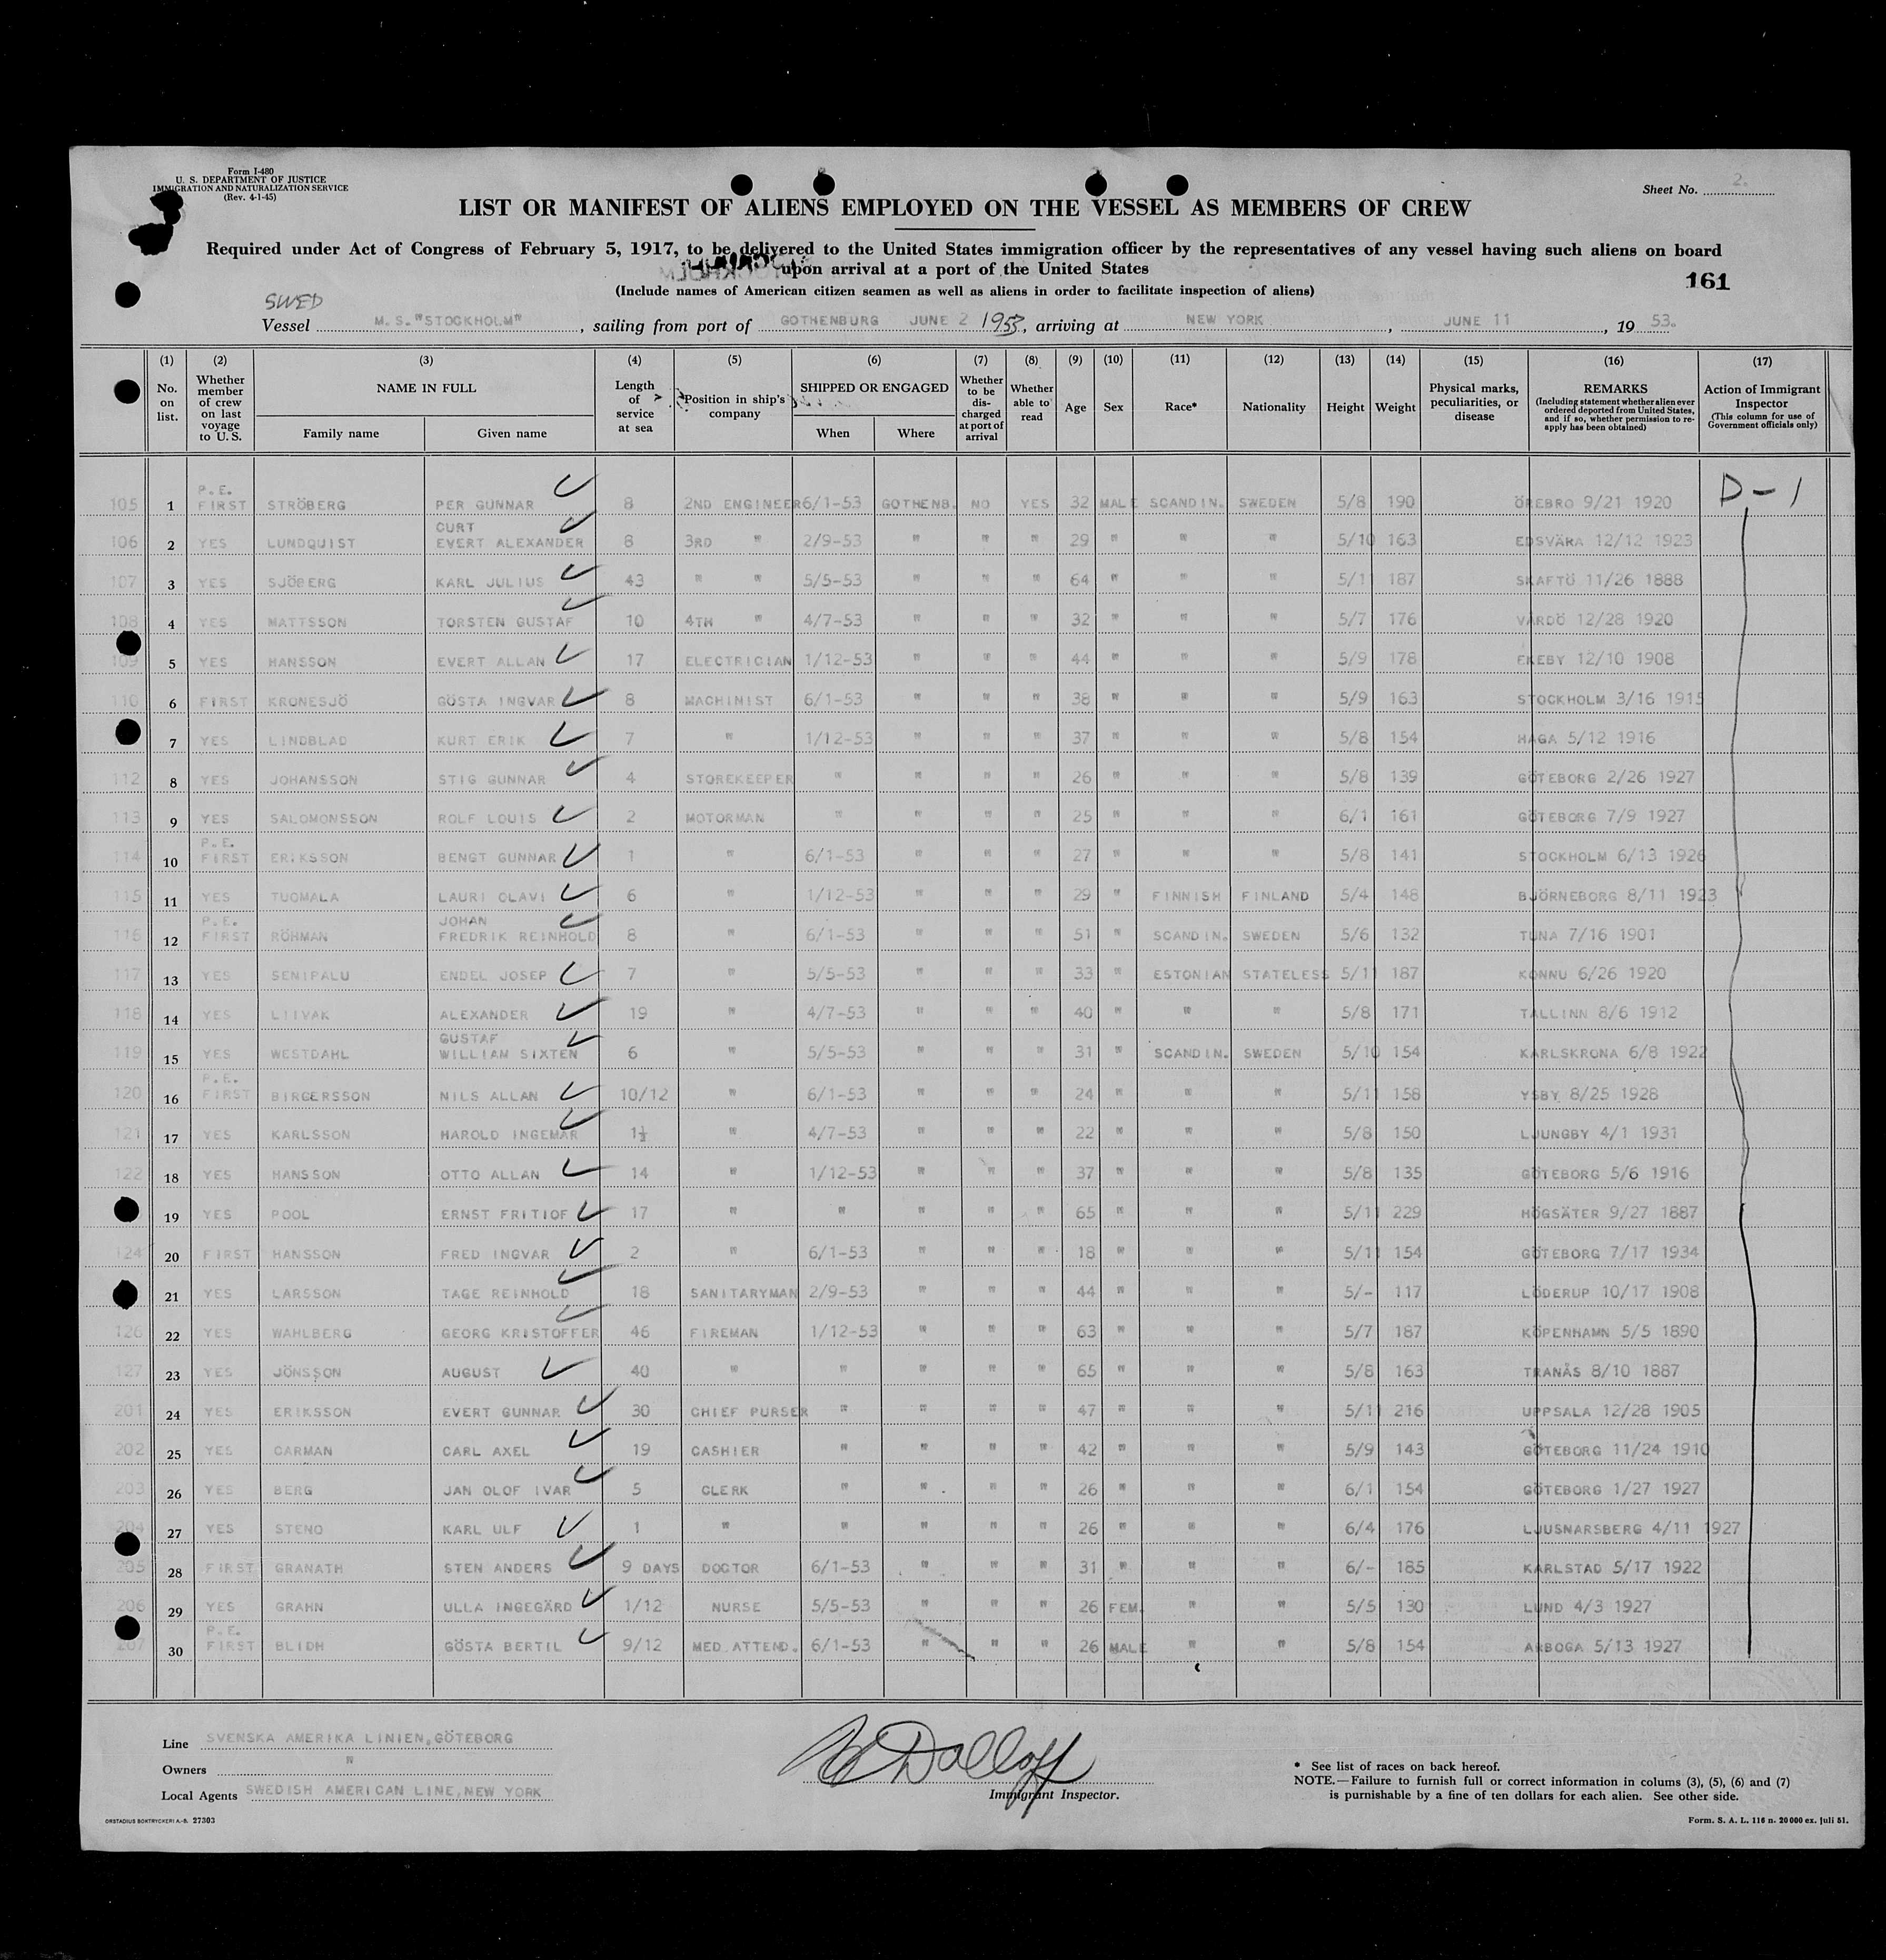 Form I-480
U. S. DEPARTMENT OF JUSTICE
IMMIGRATION AND NATURALIZATION SERVICE
(Rev. 4-1-45)
Sheet No. 2.
LIST OR MANIFEST OF ALIENS EMPLOYED ON THE VESSEL AS MEMBERS OF CREW
Required under Act of Congress of February 5, 1917, to be delivered to the United States immigration officer by the representatives of any vessel having such aliens on board
upon arrival at a port of the United States
161
(Include names of American citizen seamen as well as aliens in order to facilitate inspection of aliens)
SWED
Vessel M.S. "STOCKHOLM", sailing from port of GOTHENBURG JUNE 2 1953, arriving at NEW YORK, JUNE 11, 19 53.
(1) (2) (3) (4) (5) (6) (7) (8) (9) (10) (11) (12) (13) (14) (15) (16) (17)
No. on list. Whether member of crew on last voyage to U. S. NAME IN FULL Family name Given name Length of service at sea Position in ship's company SHIPPED OR ENGAGED When Where Whether to be discharged at port of arrival Whether able to read Age Sex Race* Nationality Height Weight Physical marks, peculiarities, or disease REMARKS (Including statement whether alien ever ordered deported from United States, and if so, whether permission to re-apply has been obtained) Action of Immigrant Inspector (This column for use of Government officials only)
105 1 P.E. FIRST STRÖBERG PER GUNNAR 8 2ND ENGINEER 6/1-53 GOTHENB. NO YES 32 MALE SCANDIN. SWEDEN 5/8 190 ÖREBRO 9/21 1920 D-1
106 2 YES LUNDQUIST CURT EVERT ALEXANDER 8 3RD " 2/9-53 " " " 29 " " " 5/10 163 EDSVÄRA 12/12 1923
107 3 YES SJÖBERG KARL JULIUS 43 " " 5/5-53 " " " 64 " " " 5/11 187 SKAFTÖ 11/26 1888
108 4 YES MATTSSON TORSTEN GUSTAF 10 4TH " 4/7-53 " " " 32 " " " 5/7 176 VÅRDÖ 12/28 1920
109 5 YES HANSSON EVERT ALLAN 17 ELECTRICIAN 1/12-53 " " " 44 " " " 5/9 178 EKEBY 12/10 1908
110 6 FIRST KRONESJÖ GÖSTA INGVAR 8 MACHINIST 6/1-53 " " " 38 " " " 5/9 163 STOCKHOLM 3/16 1915
7 YES LINDBLAD KURT ERIK 7 " 1/12-53 " " " 37 " " " 5/8 154 HAGA 5/12 1916
112 8 YES JOHANSSON STIG GUNNAR 4 STOREKEEPER " " " " 26 " " " 5/8 139 GÖTEBORG 2/26 1927
113 9 YES SALOMONSSON ROLF LOUIS 2 MOTORMAN " " " " 25 " " " 6/1 161 GÖTEBORG 7/9 1927
114 10 P.E. FIRST ERIKSSON BENGT GUNNAR 1 " 6/1-53 " " " 27 " " " 5/8 141 STOCKHOLM 6/13 1926
115 11 YES TUOMALA LAURI OLAVI 6 " 1/12-53 " " " 29 " FINNISH FINLAND 5/4 148 BJÖRNEBORG 8/11 1923
116 12 P.E. FIRST RÖHMAN JOHAN FREDRIK REINHOLD 8 " 6/1-53 " " " 51 " SCANDIN. SWEDEN 5/6 132 TUNA 7/16 1901
117 13 YES SENIPALU ENDEL JOSEP 7 " 5/5-53 " " " 33 " ESTONIAN STATELESS 5/11 187 KÕNNU 6/26 1920
118 14 YES LIIVAK ALEXANDER 19 " 4/7-53 " " " 40 " " " 5/8 171 TALLINN 8/6 1912
119 15 YES WESTDAHL GUSTAF WILLIAM SIXTEN 6 " 5/5-53 " " " 31 " SCANDIN. SWEDEN 5/10 154 KARLSKRONA 6/8 1922
120 16 P.E. FIRST BIRGERSSON NILS ALLAN 10/12 " 6/1-53 " " " 24 " " " 5/11 158 YSBY 8/25 1928
121 17 YES KARLSSON HAROLD INGEMAR 1½ " 4/7-53 " " " 22 " " " 5/8 150 LJUNGBY 4/1 1931
122 18 YES HANSSON OTTO ALLAN 14 " 1/12-53 " " " 37 " " " 5/8 135 GÖTEBORG 5/6 1916
19 YES POOL ERNST FRITIOF 17 " " " " " 65 " " " 5/11 229 HÖGSÄTER 9/27 1887
124 20 FIRST HANSSON FRED INGVAR 2 " 6/1-53 " " " 18 " " " 5/11 154 GÖTEBORG 7/17 1934
21 YES LARSSON TAGE REINHOLD 18 SANITARYMAN 2/9-53 " " " 44 " " " 5/- 117 LÖDERUP 10/17 1908
126 22 YES WAHLBERG GEORG KRISTOFFER 46 FIREMAN 1/12-53 " " " 63 " " " 5/7 187 KÖPENHAMN 5/5 1890
127 23 YES JÖNSSON AUGUST 40 " " " " " 65 " " " 5/8 163 TRANÅS 8/10 1887
201 24 YES ERIKSSON EVERT GUNNAR 30 CHIEF PURSER " " " " 47 " " " 5/11 216 UPPSALA 12/28 1905
202 25 YES CARMAN CARL AXEL 19 CASHIER " " " " 42 " " " 5/9 143 GÖTEBORG 11/24 1910
203 26 YES BERG JAN OLOF IVAR 5 CLERK " " " " 26 " " " 6/1 154 GÖTEBORG 1/27 1927
204 27 YES STENO KARL ULF 1 " " " " " 26 " " " 6/4 176 LJUSNARSBERG 4/11 1927
205 28 FIRST GRANATH STEN ANDERS 9 DAYS DOCTOR 6/1-53 " " " 31 " " " 6/- 185 KARLSTAD 5/17 1922
206 29 YES GRAHN ULLA INGEGÄRD 1/12 NURSE 5/5-53 " " " 26 FEM. " " 5/5 130 LUND 4/3 1927
207 30 P.E. FIRST BLIDH GÖSTA BERTIL 9/12 MED.ATTEND. 6/1-53 " " " 26 MALE " " 5/8 154 ARBOGA 5/13 1927
Line SVENSKA AMERIKA LINIEN, GÖTEBORG
Owners "
Local Agents SWEDISH AMERICAN LINE, NEW YORK
Immigrant Inspector.
* See list of races on back hereof.
NOTE.—Failure to furnish full or correct information in colums (3), (5), (6) and (7)
is purnishable by a fine of ten dollars for each alien. See other side.
ORSTADIUS BOKTRYCKERI A.-B. 27303
Form. S. A. L. 116 n. 20 000 ex. juli 51.